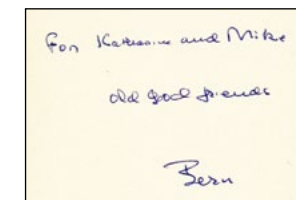 For Katharine and Mike
old good friends
Bern